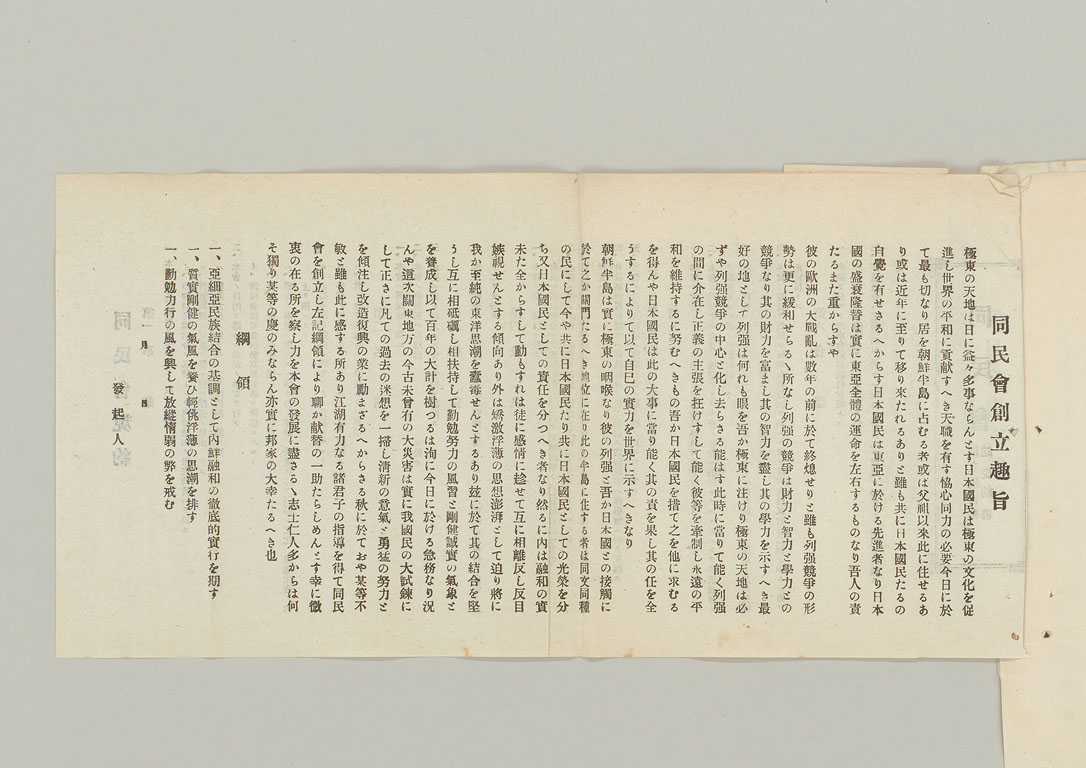 同民會創立趣旨
極東の天地は日に益々多事ならんとす日本國民は極東の文化を促
進し世界の平和に貢献すへき天職を有す恊心同力の必要今日に於
て最も切なり居を朝鮮半島に占むる者或は父祖以來此に住せるあ
り或は近年に至りて移り來たれるありと雖も共に日本國民たるの
自覺を有せさるへからす日本國民は東亞に於ける先進者なり日本
國の盛衰隆替は實に東亞全體の運命を左右するものなり吾人の責
たるまた重からすや
彼の歐洲の大戰亂は數年の前に於て終熄せりと雖も列强競爭の形
勢は更に緩和せらるゝ所なし列强の競爭は財力と智力と學力との
競爭なり其の財力を富まし其の智力を盡し其の學力を示すへき最
好の地として列强は何れも眼を吾か極東に注けり極東の天地は必
すや列强競爭の中心と化し去らさる能はす此時に當りて能く列强
の間に介在し正義の主張を狂けすして能く彼等を牽制し永遠の平
和を維持するに努むへきもの吾か日本國民を措て之を他に求むる
を得んや日本國民は此の大事に當り能く其の責を果し其の任を全
うするによりて以て自己の實力を世界に示すへきなり
朝鮮半島は實に極東の咽喉なり彼の列强と吾か日本國との接觸に
於て之か關門たるへき地位に在り此の半島に住する者は同文同種
の民にして今や共に日本國民たり共に日本國民としての光榮を分
ち又日本國民としての責任を分つへき者なり然るに内は融和の實
未た全からすして動もすれは徒に感情に趁せて互に相離反し反目
嫉視せんとする傾向あり外は矯激浮薄の思想澎湃として迫り將に
我か至純の東洋思潮を蠹毒せんとするあり玆に於て其の結合を堅
うし互に相砥礪し相扶持して勤勉努力の風習と剛健誠實の氣象と
を養成し以て百年の大計を樹つるは洵に今日に於ける急務なり況
んや這次關東地方の今古未曾有の大災害は實に我國民の大試鍊に
して正さに凡ての過去の迷想を一掃し淸新の意氣と勇猛の努力と
を傾注し改造復興の業に勵まざるへからさる秋に於ておや某等不
敏と雖も此に感する所あり江湖有力なる諸君子の指導を得て同民
會を創立し左記綱領により聊か献替の一助たらしめんとす幸に微
衷の在る所を察し力を本會の發展に盡さるゝ志士仁人多からは何
そ獨り某等の慶のみならん亦實に邦家の大幸たるへき也
綱領
一、亞細亞民族結合の基調として內鮮融和の徹底的實行を期す
一、質實剛健の氣風を養ひ輕佻浮薄の思潮を排す
一、勤勉力行の風を興して放縱惰弱の弊を戒む
月 日
發起人